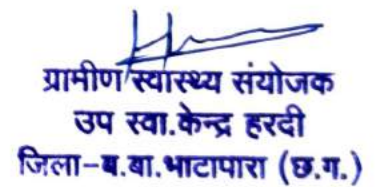 ग्रामीण स्वास्थ्य संयोजक
उप स्वा.केन्द्र हरदी
जिला-ब.बा.भाटापारा (छ.ग.)